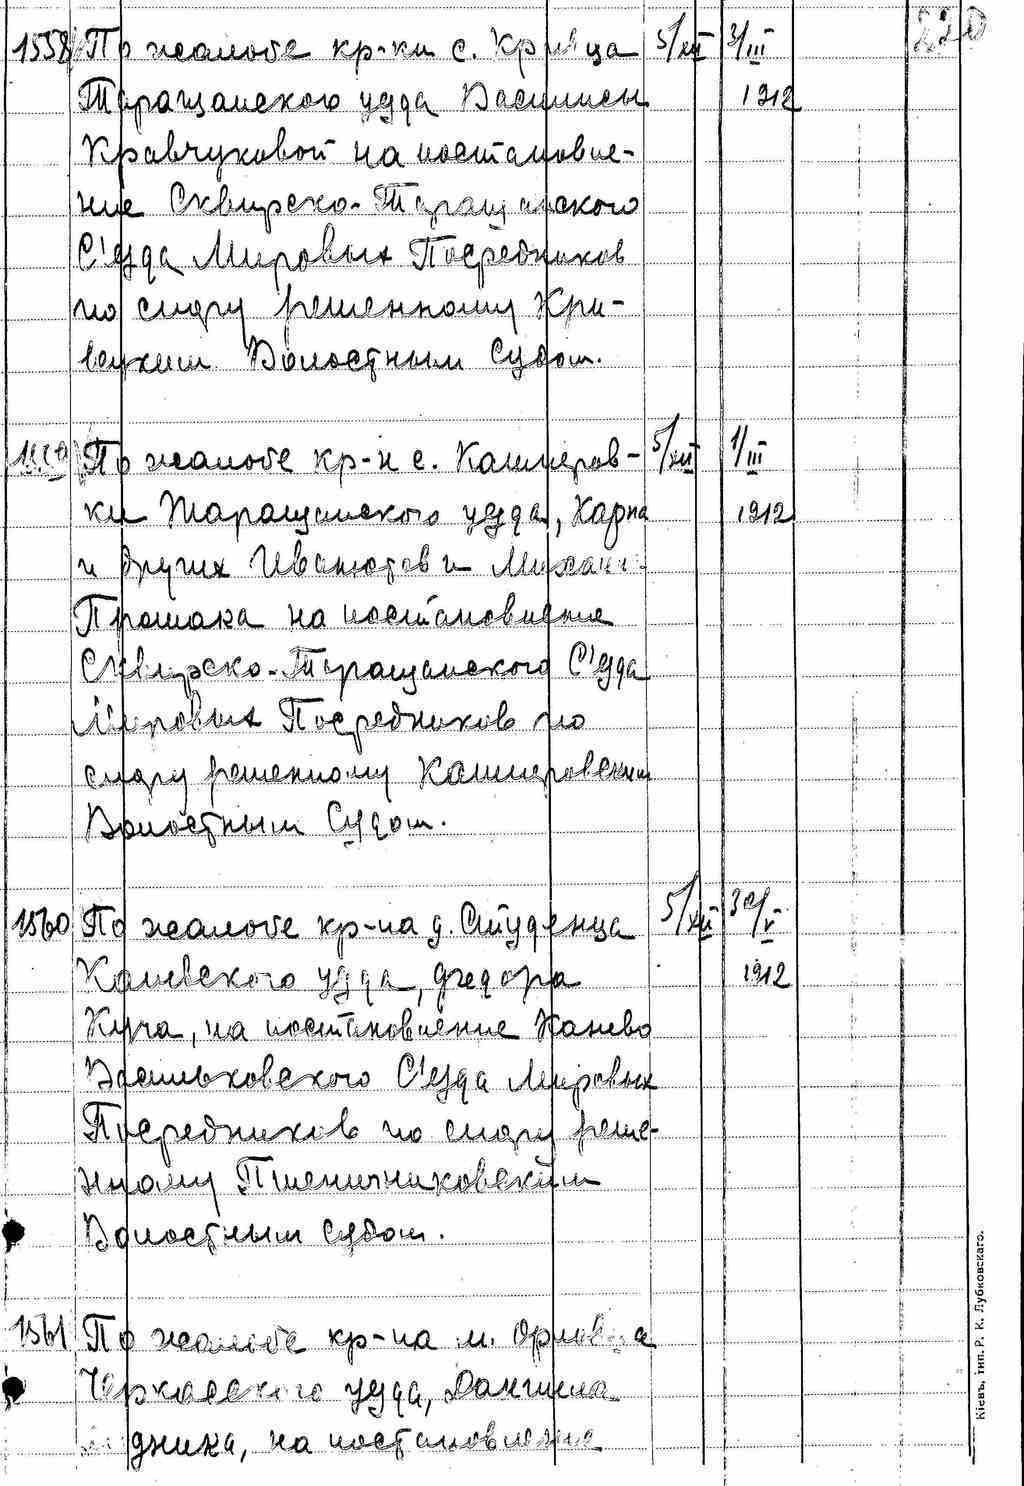 220
1558 По жалобе кр-ки с. Кривца 5/XII 3/III
Таращанского уезда Василисы 1912
Кравчуковой на постановле-
ние Сквирско-Таращанского
С'езда Мировых Посредников
по спору решенному Кри-
вецким Волостным Судом.
По жалобе кр-н с. Кашперов- 5/XII 1/III
ки Таращанского уезда, Карпа 1912
и других Иванютов и
Прошака на постановление
Сквирско-Таращанского С'езда
Мировых Посредников по
спору решенному Кашперовским
Волостным Судом.
1560 По жалобе кр-на д. Студенца 5/XII 30/V
Каневского уезда, Федора 1912
Куча, на постановление Канево
Васильковского С'езда Мировых
Посредников по спору реше-
нному Пшеничниковским
Волостным Судом.
1561 По жалобе кр-на м. Орловца
Черкасского уезда, Даниила
дника, на постановление
Кіевъ, тип. Р. К. Лубковскаго.